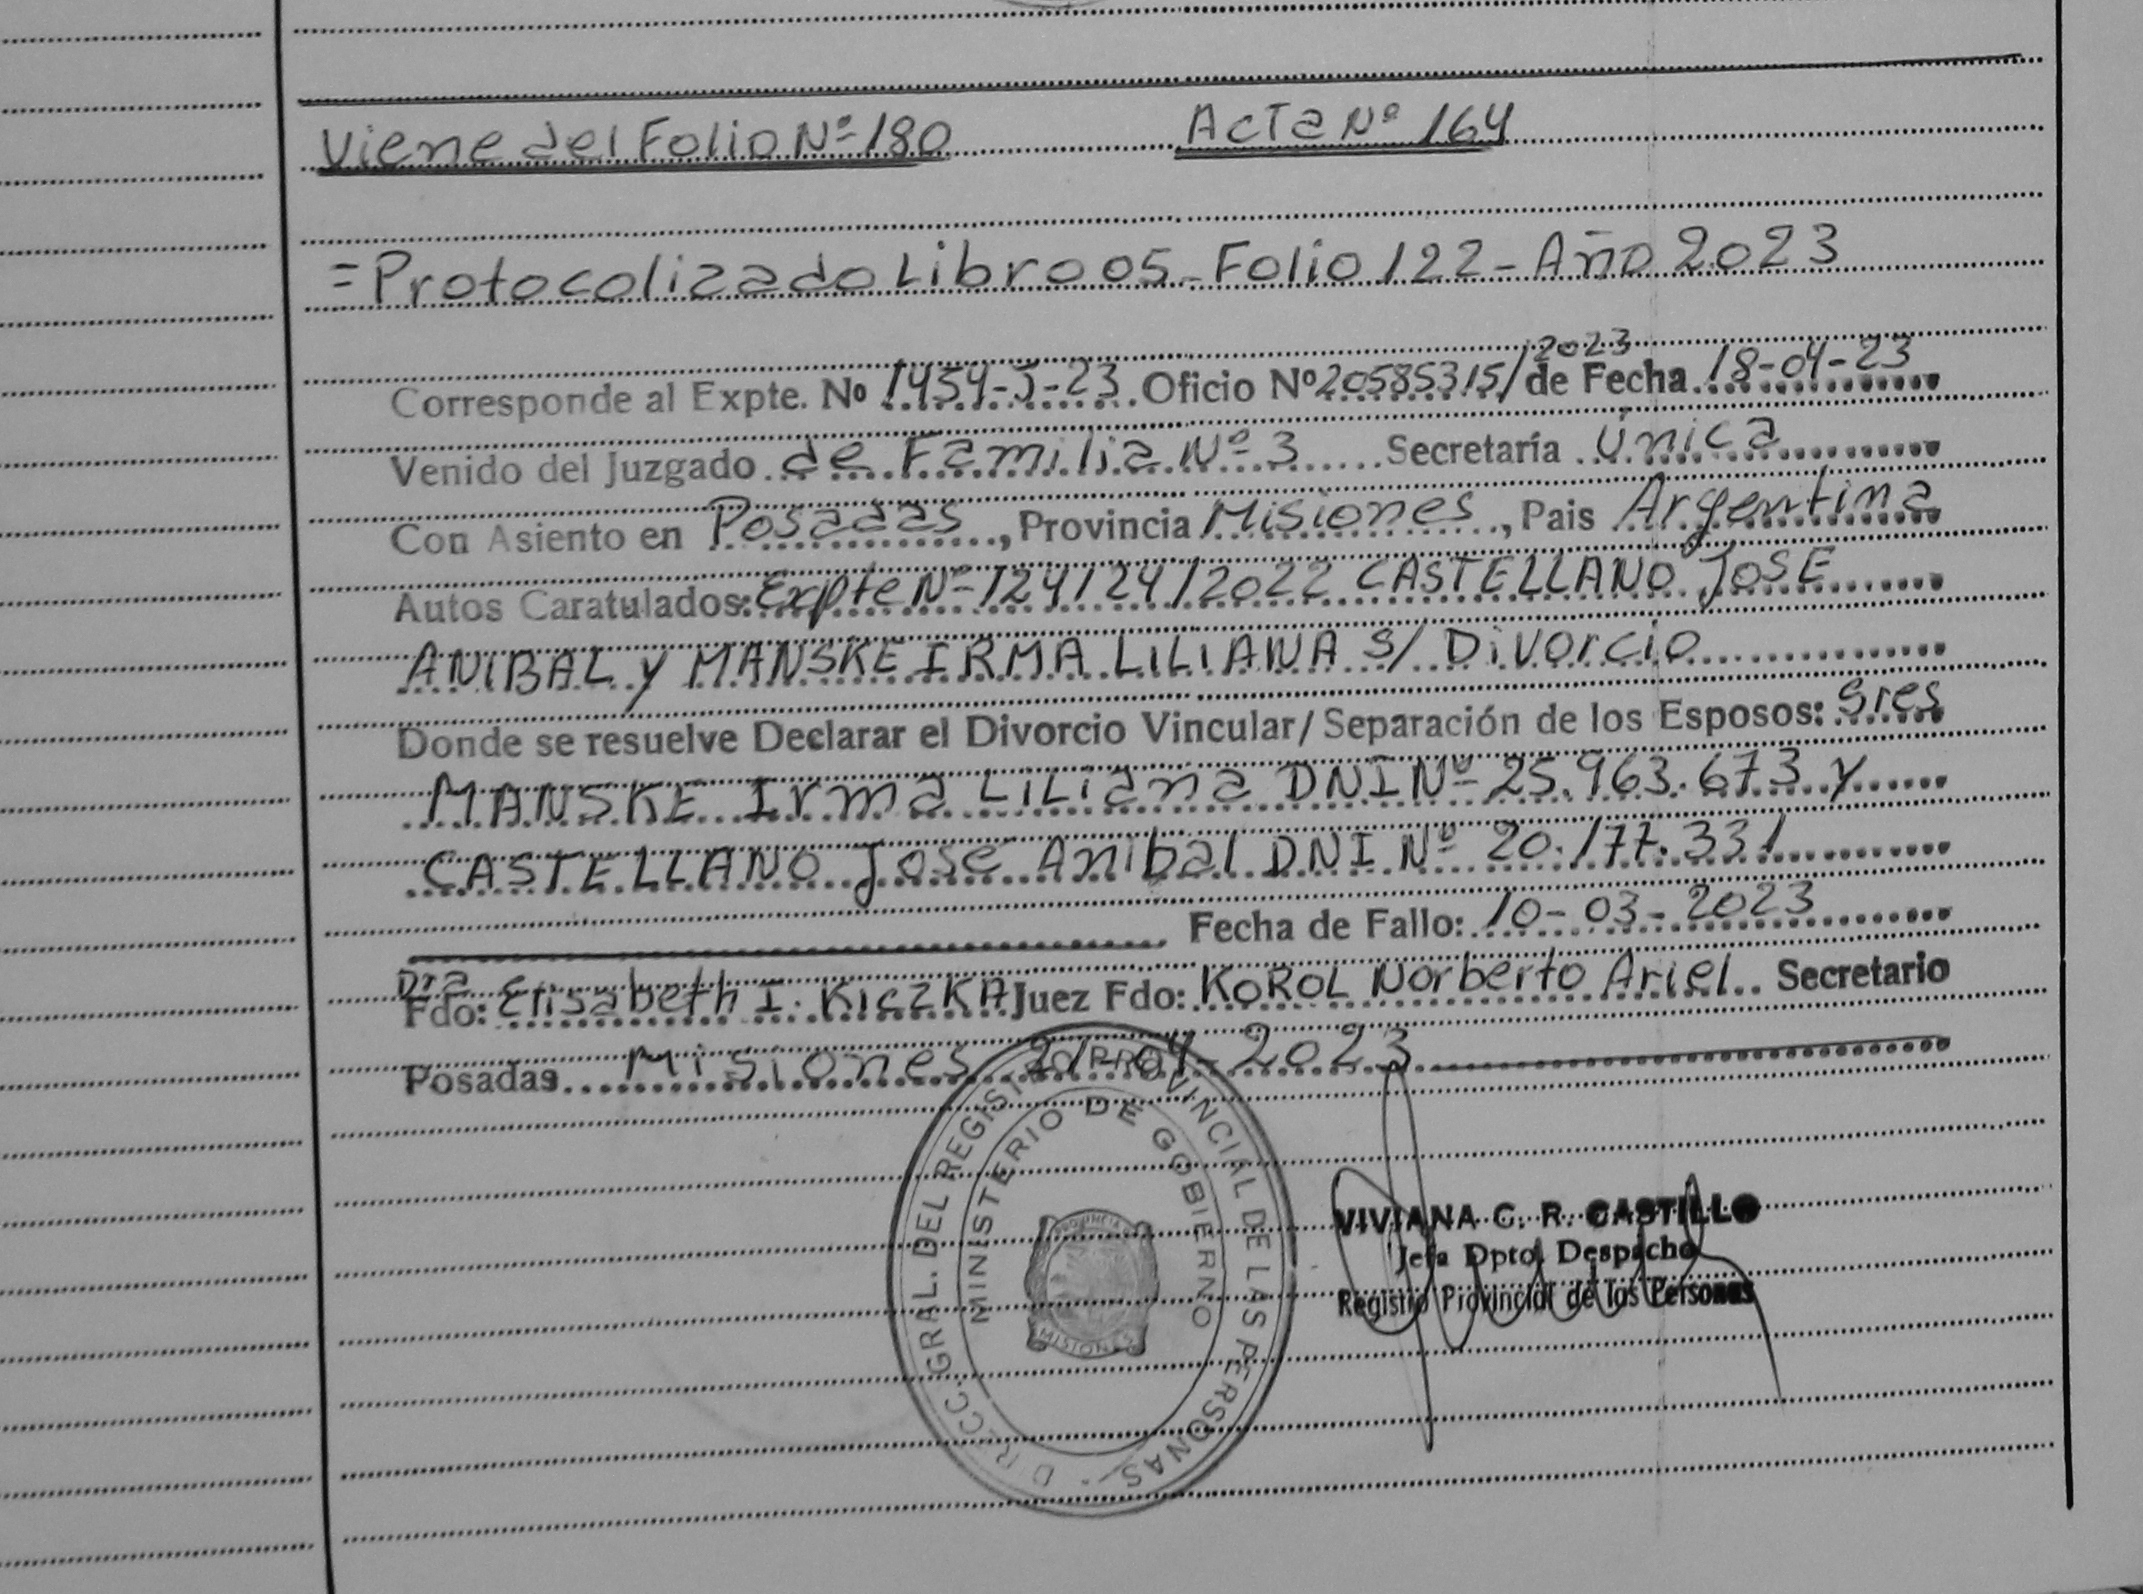 Viene del Folio Nº 180 Acta Nº 164
= Protocolizado Libro 05 - Folio 122 - Año 2023
Corresponde al Expte. Nº 1454-J-23 Oficio Nº 20585315/2023 de Fecha 18-04-23
Venido del Juzgado de Familia Nº 3 Secretaría única
Con Asiento en Posadas, Provincia Misiones, Pais Argentina
Autos Caratulados: Expte Nº 124124/2022 CASTELLANO JOSE
ANIBAL y MANSKE IRMA LILIANA S/ Divorcio
Donde se resuelve Declarar el Divorcio Vincular/ Separación de los Esposos: Sres
MANSKE Irma LiLiana DNI Nº 25.963.673 y
CASTELLANO José Anibal DNI Nº 20.177.331
Fecha de Fallo: 10-03-2023
Fdo: Dra Elisabeth I. KiczKA Juez Fdo: KOROL Norberto Ariel Secretario
Posadas Misiones 21-04-2023
DIRECC. GRAL. DEL REGISTRO PROVINCIAL DE LAS PERSONAS
MINISTERIO DE GOBIERNO
PROVINCIA
MISIONES
VIVIANA C. R. CASTILLO
Jefa Dpto. Despacho
Registro Provincial de las Personas